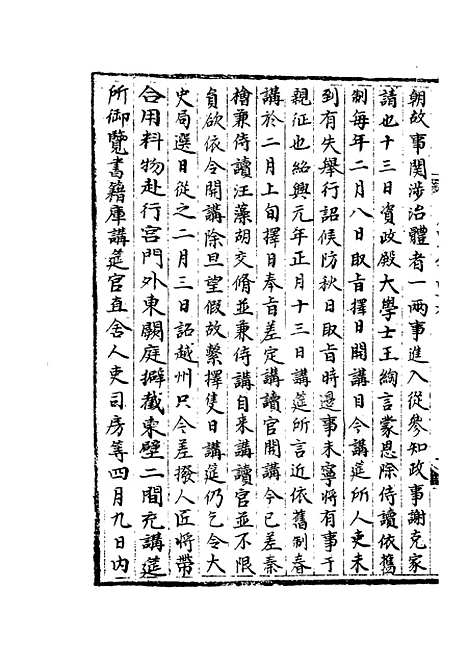 朝故事關涉治體者一兩事進入從參知政事謝克家
請也十三日資政殿大學士王綯言蒙恩除侍讀依舊
制每年二月八日取㫖擇日開講日今講筵所人吏未
到有失舉行詔候防秋日取㫖時邊事未寧將有事于
親征也紹興元年正月十三日講筵所言近依舊制春
講於二月上旬擇日奉㫖差定講讀官開講今已差秦
檜兼侍讀汪藻胡交脩並兼侍講自來講讀官並不限
員欲依令開講除旦望假故繫擇隻日講筵仍乞令大
史局選日從之二月三日詔越州只令差撥人匠將帶
合用料物赴行宮門外東闕庭擗截東壁二間充講筵
所御覽書籍庫講筵官直舍人吏司房等四月九日内